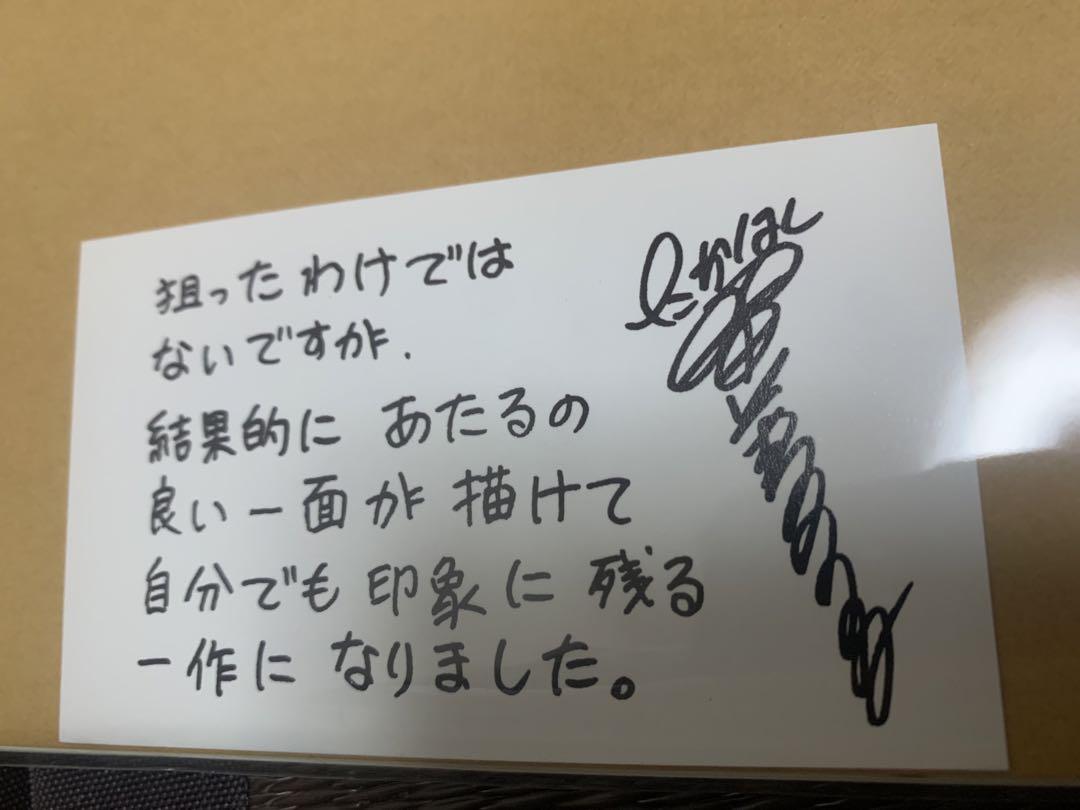 狙ったわけでは
ないですが、
結果的に あたるの
良い一面が 描けて
自分でも 印象に 残る
一作に なりました。
たかはし